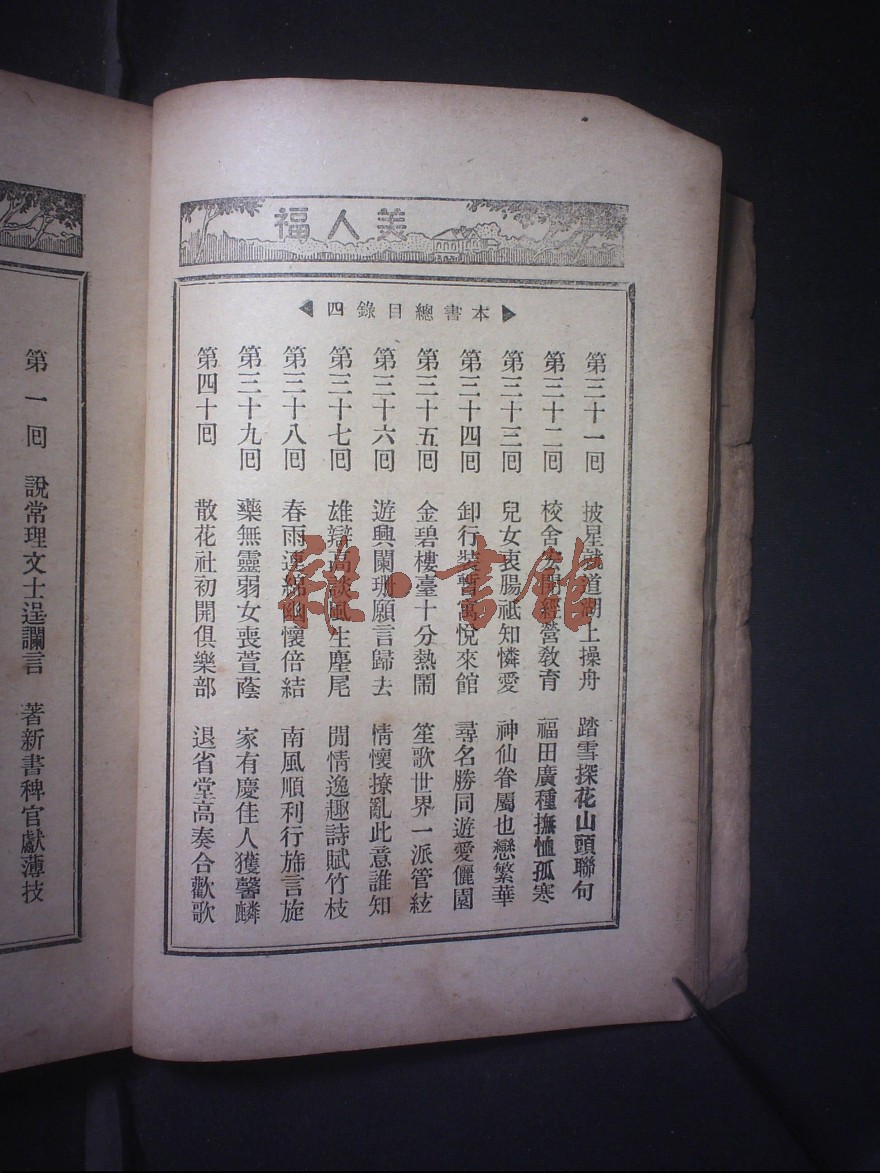 美人福
本書總目錄四
第三十一回 披星戴道湖上操舟 踏雪探花山頭聯句
第三十二回 校舍宏開經營教育 福田廣種撫恤孤寒
第三十三回 兒女衷腸祗知憐愛 神仙眷屬也戀繁華
第三十四回 卸行裝暫寓悅來館 尋名勝同遊愛儷園
第三十五回 金碧樓臺十分熱鬧 笙歌世界一派管絃
第三十六回 遊興闌珊願言歸去 情懷撩亂此意誰知
第三十七回 雄辯高談風生麈尾 閒情逸趣詩賦竹枝
第三十八回 春雨連綿幽懷倍結 南風順利行旆言旋
第三十九回 藥無靈弱女喪萱蔭 家有慶佳人獲馨麟
第四十回 散花社初開俱樂部 退省堂高奏合歡歌
第一回 說常理文士逞讕言 著新書稗官獻薄技
雜·書館